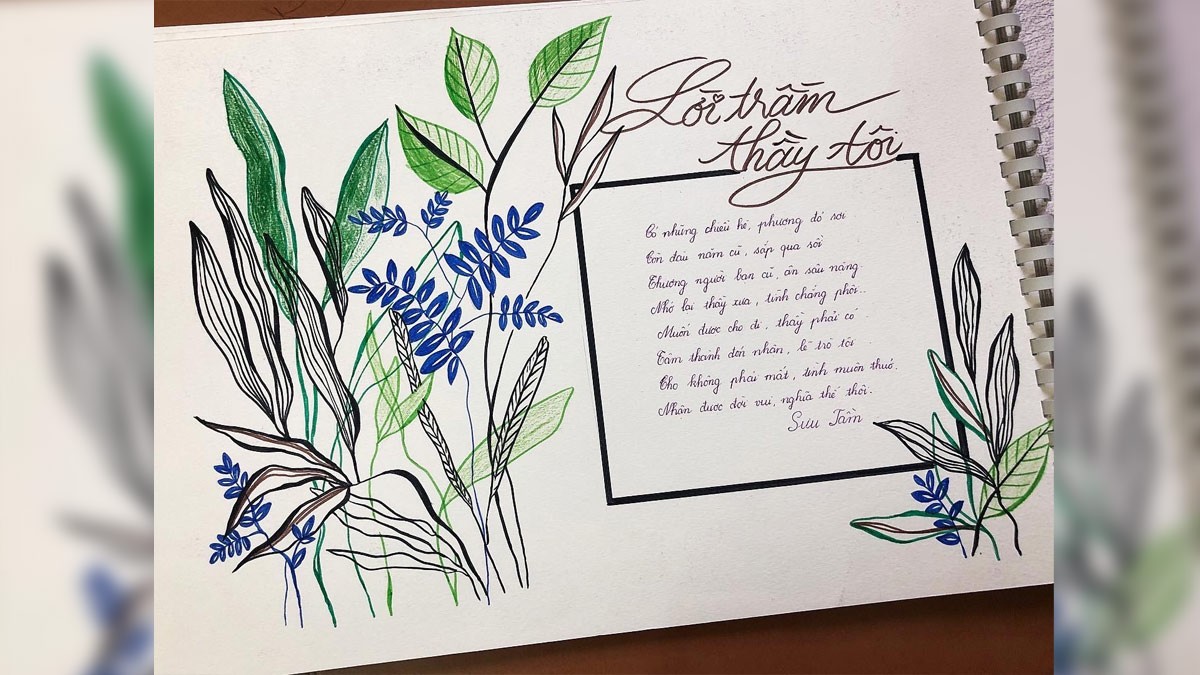 Lời trầm
thầy tôi
Có những chiều hè, phượng đỏ rơi
Còn đâu năm cũ, sắp qua rồi
Thương người bạn cũ, ân sâu nặng
Nhớ lại thầy xưa, tình chẳng phôi..
Muốn được cho đi, thầy phải có
Tâm thành đón nhận, lẽ trò tôi
Cho không phải mất, tình muôn thuở.
Nhận được đời vui, nghĩa thế thôi.
Sưu Tầm